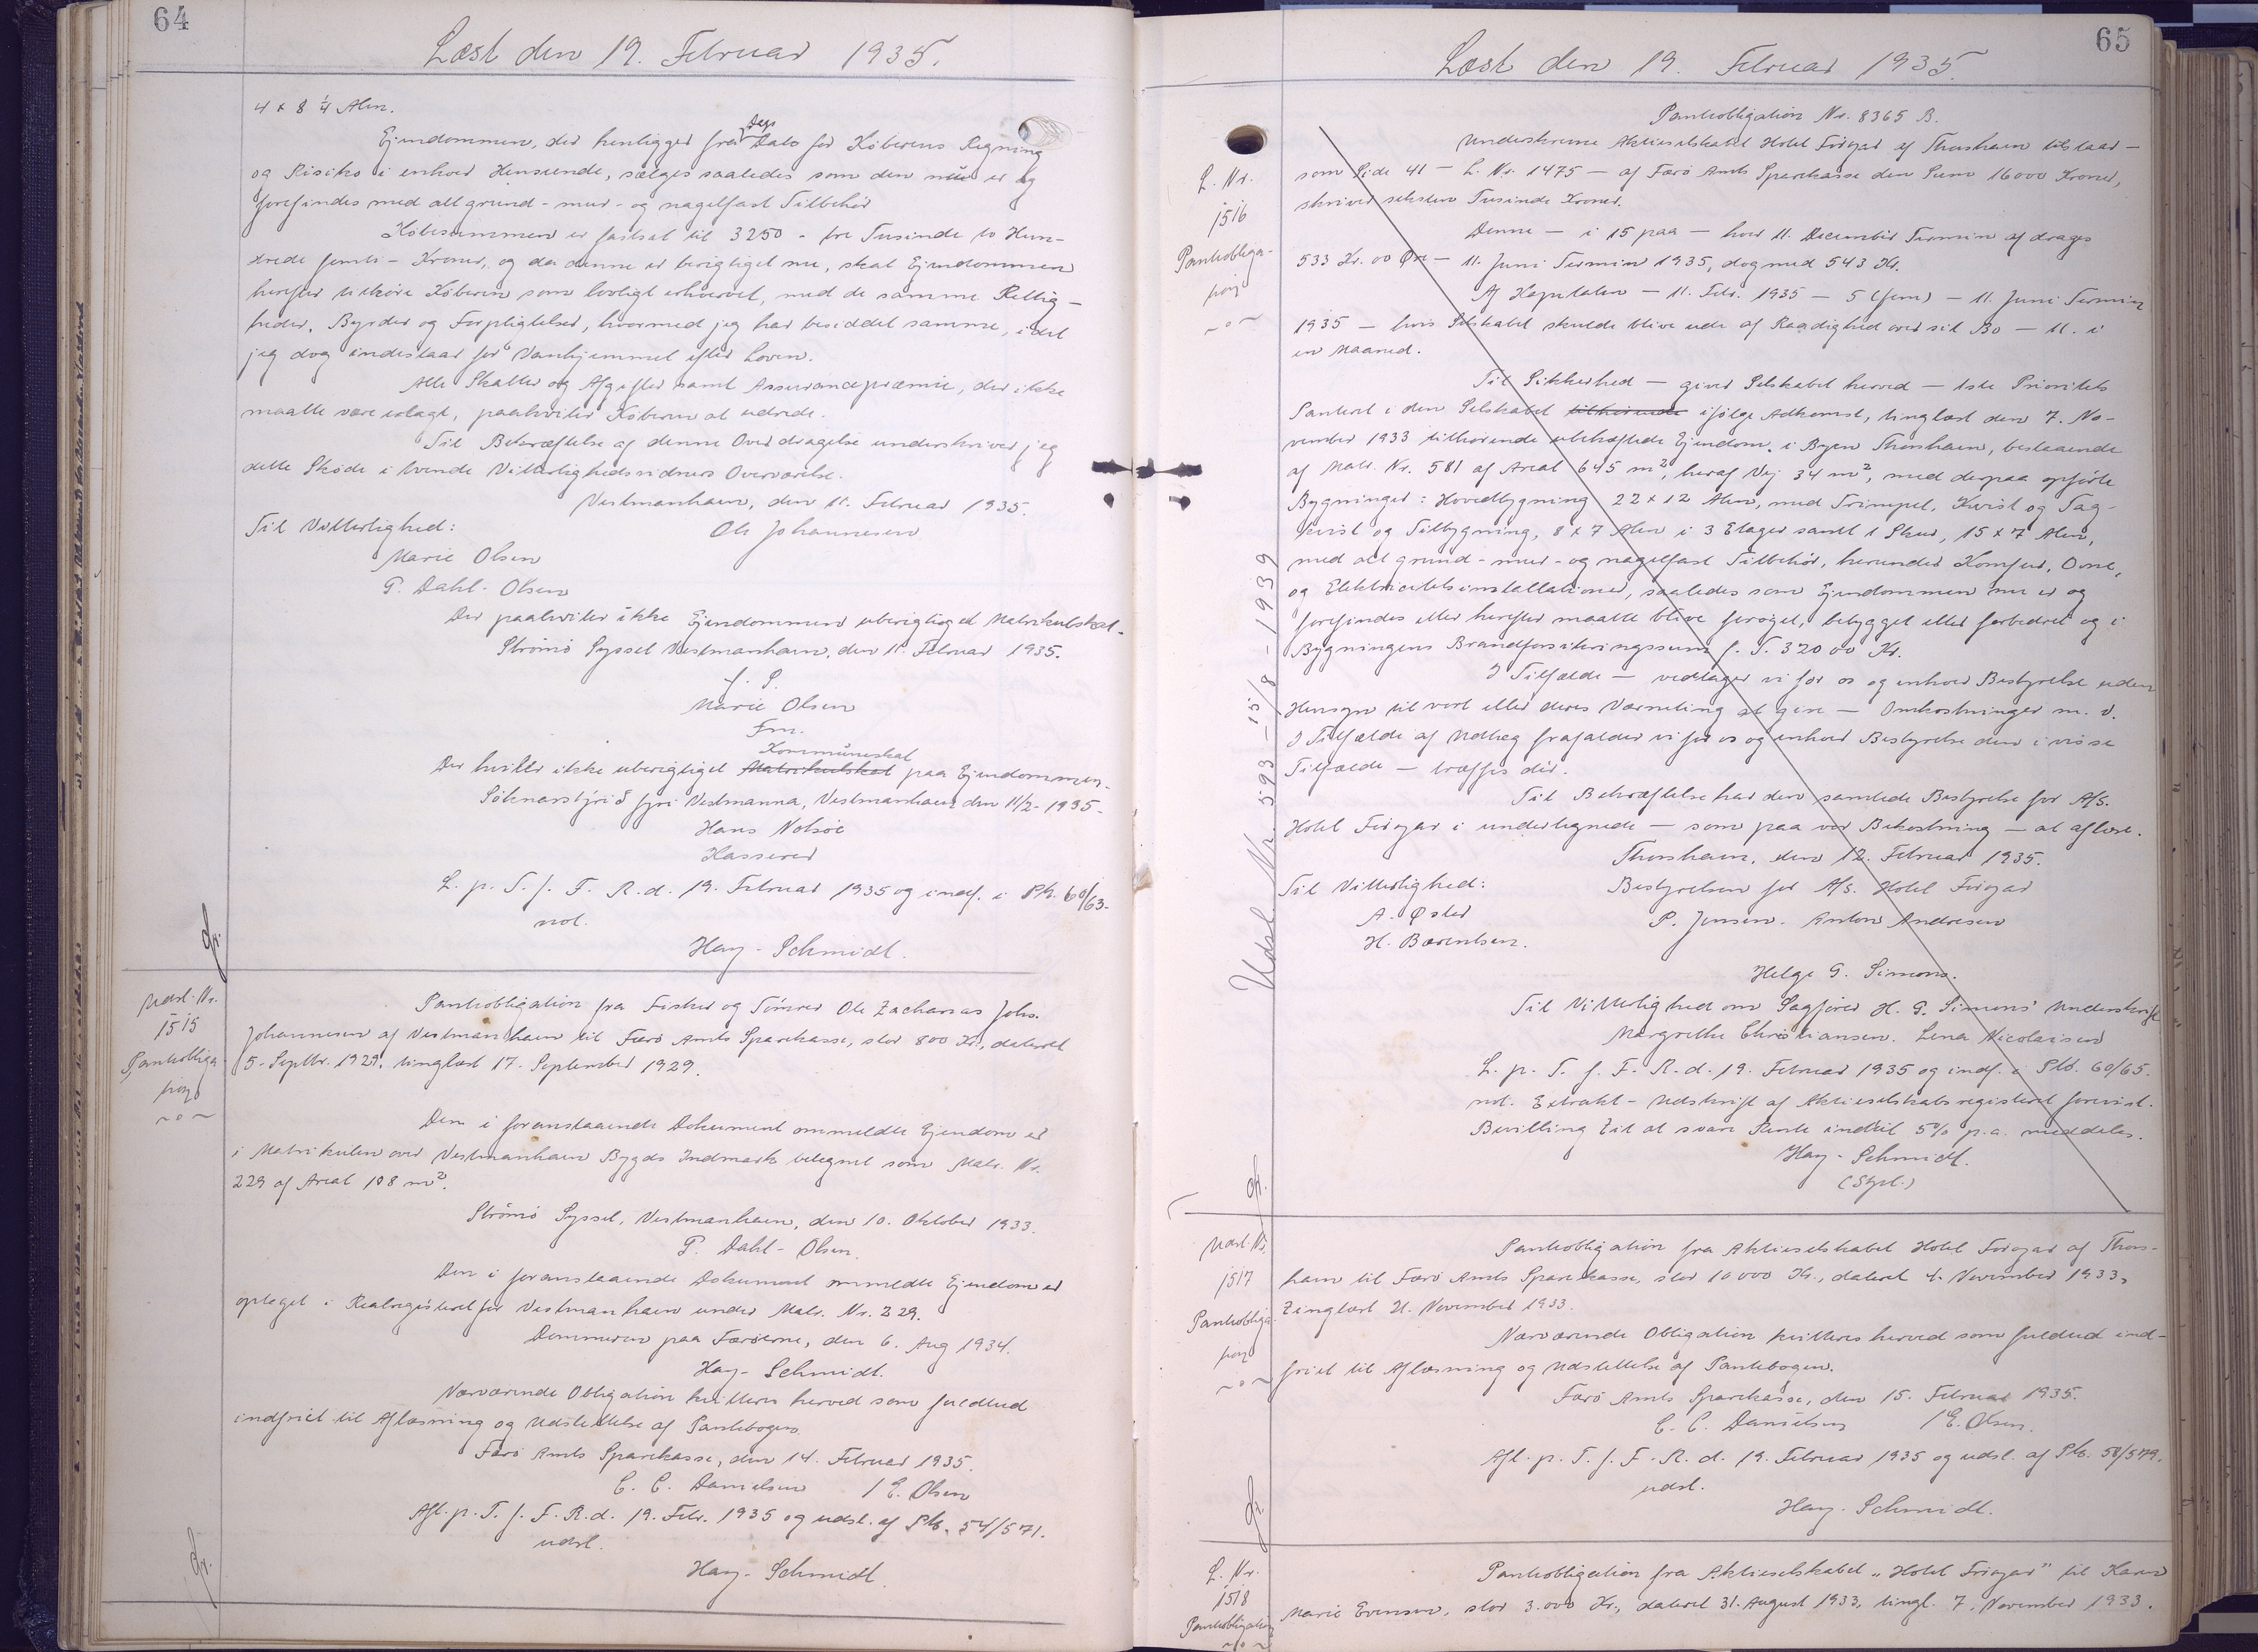 64
Læst den 19. Februar 1935.
4 x 8 1/4 Alen.
Ejendommen, der henligger fra Dags Dato for Køberens Regning
og Risiko i enhver Henseende, sælges saaledes som den nu er og
forefindes med alt grund- mur- og nagelfast Tilbehør
Købesummen er fastsat til 3250 - tre Tusinde to Hun-
drede femti - Kroner, og da denne er berigtiget nu, skal Ejendommen
herefter tilhøre Køberen som lovligt erhvervet, med de samme Rettig-
heder, Byrder og Forpligtelser, hvormed jeg har besiddet samme, idet
jeg dog indestaar for Vanhjemmel efter Loven.
Alle Skatter og Afgifter samt Assurancepræmie, der ikke
maatte være erlagt, paahviler Køberen at udrede.
Til Bekræftelse af denne Overdragelse underskriver jeg
dette Skøde i tvende Vitterlighedsvidners Overværelse.
Vestmanhavn, den 11. Februar 1935.
Til Vitterlighed: Ole Johannesen
Marie Olsen
P. Dahl-Olsen
Der paahviler ikke Ejendommen uberigtiget Matrikulskat.
Strømø Syssel Vestmanhavn, den 11. Februar 1935.
f. S.
Marie Olsen
Fm.
Kommuneskat
Der hviler ikke uberigtiget Matrikulskat paa Ejendommen.
Sóknarstýrið fyri Vestmanna, Vestmanhavn den 11/2-1935-
Hans Nolsøe
Kasserer
L. p. T. f. F. R. d. 19. Februar 1935 og indf. i Pb. 60/63.
not.
Hay-Schmidt.
Udsl. Nr.
1515
Pantobliga-
tion
Pantobligation fra Fisker og Tømrer Ole Zacharias Johs.
Johannesen af Vestmanhavn til Færø Amts Sparekasse, stor 800 Kr., dateret
5. Septbr. 1929, tinglæst 17. September 1929.
Den i foranstaaende Dokument ommeldte Ejendom er
i Matrikulen over Vestmanhavn Bygds Indmark betegnet som Matr. Nr.
229 af Areal 108 m².
Strømø Syssel, Vestmanhavn, den 10. Oktober 1933.
P. Dahl-Olsen.
Den i foranstaaende Dokument ommeldte Ejendom er
optaget i Realregisteret for Vestmanhavn under Matr. Nr. 229.
Dommeren paa Færøerne, den 6. Aug 1934.
Hay-Schmidt.
Nærværende Obligation kvitteres herved som fuldtud
indfriet til Aflæsning og Udslettelse af Pantebogen.
Færø Amts Sparekasse, den 14. Februar 1935.
C. C. Danielsen / E. Olsen
Afl. p. T. f. F. R. d. 19. Febr. 1935 og udsl. af Pb. 54/571.
udsl.
Hay-Schmidt.
65
Læst den 19. Februar 1935.
L. Nr.
1516
Pantobliga-
tion
Pantobligation Nr. 8365 B.
Underskrevne Aktieselskabet Hotel Føroyar af Thorshavn tilstaar -
som Side 41 - L. Nr. 1475 - af Færø Amts Sparekasse den Sum 16000 Kroner,
skriver seksten Tusinde Kroner.
Denne - i 15 paa - hver 11. December Termin afdrages
533 Kr. 00 Øre - 11. Juni Termin 1935, dog med 543 Kr.
Af Kapitalen - 11. Febr. 1935 - 5 (fem) - 11. Juni Termin
1935 - hvis Selskabet skulde blive ude af Raadighed over sit Bo - 11. i
en Maaned.
Til Sikkerhed - giver Selskabet herved - 1ste Prioritets
Panteret i den Selskabet tilhørende ifølge Adkomst, tinglæst den 7. No-
vember 1933 tilhørende ubehæftede Ejendom i Byen Thorshavn, bestaaende
af Matr. Nr. 581 af Areal 645 m², heraf Vej 34 m², med derpaa opførte
Bygninger: Hovedbygning 22 x 12 Alen, med Trimpel, Kvist og Tag-
kvist og Tilbygning, 8 x 7 Alen i 3 Etager samt 1 Skur, 15 x 7 Alen,
med alt grund- mur- og nagelfast Tilbehør, herunder Komfur, Ovne,
og Elektricitetsinstallationer, saaledes som Ejendommen nu er og
forefindes eller herefter maatte blive forøget, bebygget eller forbedret og i
Bygningens Brandforsikringssum f. T. 32000 Kr.
I Tilfælde - vedtager vi for os og enhver Bestyrelse uden
Hensyn til vort eller deres Værneting at give - Omkostninger m. v.
I Tilfælde af Udlæg frafalder vi for os og enhver Bestyrelse den i visse
Tilfælde - træffes dér.
Til Bekræftelse har den samlede Bestyrelse for A/S.
Hotel Føroyar i undertegnede - som paa vor Bekostning - at aflæse.
Thorshavn, den 12. Februar 1935.
Til Vitterlighed: Bestyrelsen for A/S. Hotel Føroyar
A. Øster P. Jensen. Anton Andresen
H. Bærentsen.
Helge G. Simons.
Til Vitterlighed om Sagfører H. G. Simons' Underskrift
Margrethe Christiansen. Lena Nicolaisen
L. p. T. f. F. R. d. 19. Februar 1935 og indf. i Pb. 60/65.
not. Extrakt-Udskrift af Aktieselskabsregisteret forevist.
Bevilling til at svare Rente indtil 5% p.a. meddeles.
Hay-Schmidt.
(Stpl.)
Udsl. Nr. 593 - 15/8 - 1939
Udsl. Nr.
1517
Pantobliga-
tion
Pantobligation fra Aktieselskabet Hotel Føroyar af Thors-
havn til Færø Amts Sparekasse, stor 10000 Kr., dateret 4. November 1933,
Tinglæst 21. November 1933.
Nærværende Obligation kvitteres herved som fuldtud ind-
friet til Aflæsning og Udslettelse af Pantebogen.
Færø Amts Sparekasse, den 15. Februar 1935.
C. C. Danielsen / E. Olsen.
Afl. p. T. f. F. R. d. 19. Februar 1935 og udsl. af Pb. 58/579.
udsl.
Hay-Schmidt.
L. Nr.
1518
Pantobligation
Pantobligation fra Aktieselskabet „Hotel Føroyar" til Karen
Marie Evensen, stor 3.000 Kr., dateret 31. August 1933, tingl. 7. November 1933.